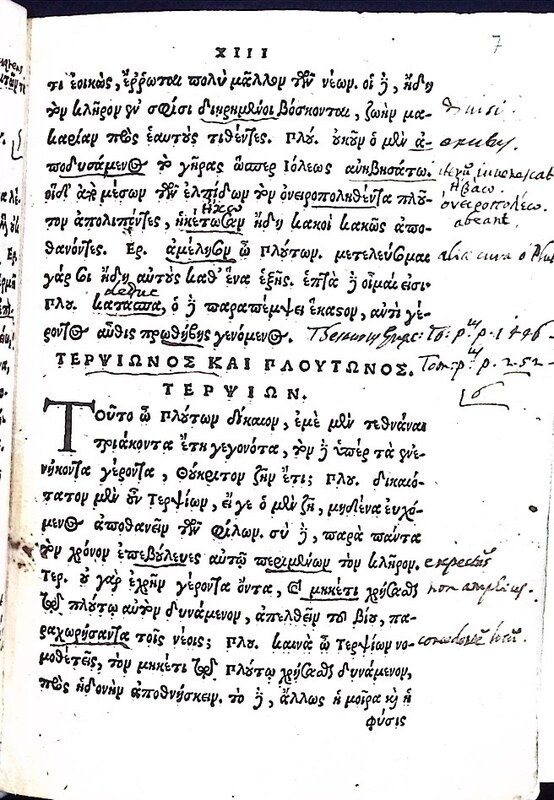 XIII
7
τι ἐοικὼς, ἔῤῥωται πολὺ μᾶλλον τῶν νέων. οἱ δὲ, ἤδη
τὸν κλῆρον ἐν σφίσι διῃρημένοι βόσκονται, ζωὴν μα-
καρίαν πρὸς ἑαυτοὺς τιθέντες. Πλυ. οὐκοῦν ὁ μὲν ἀ-
ποδυσάμενος τὸ γῆρας ὥσπερ Ιόλεως ἀνηβησάτω.
οἱ δὲ ἀπὸ μέσων τῶν ἐλπίδων τὸν ὀνειροποληθέντα πλοῦ-
Ἥβαω.
ὀνειροπολέω.
τον ἀπολιπόντες, ἡκέτωσαν ἤδη κακοὶ κακῶς ἀπο-
abeant.
θανόντες. Ερ. ἀμέλησον ὦ Πλούτων. μετελεύσομαι
γάρ σοι ἤδη αὐτοὺς καθ' ἕνα ἑξῆς. ἑπτὰ δὲ οἶμαι εἰσι
Πλυ. κατάσπα, ὁ δὲ παραπέμψει ἕκαστον, αὐτὶ γέ-
ροντος αὖθις πρωθήβης γενόμενος.
ΤΕΡΨΙΩΝΟΣ ΚΑΙ ΠΛΟΥΤΩΝΟΣ.
ΤΕΡΨΙΩΝ.
Τοῦτο ὦ Πλύτων δίκαιον, ἐμὲ μὲν τεθνάναι
τριάκοντα ἔτη γεγονότα, τὸν δὲ ὑπὲρ τὰ ἐνε-
νήκοντα γέροντα, Θούκριτον ζῆν ἔτι; Πλυ. δικαιό-
τατον μὲν οὖν Τερψίων, εἴ γε ὁ μὲν ζῇ, μηδένα εὐχό-
μενος ἀποθανεῖν τῶν φίλων. σὺ δὲ, παρὰ πάντα
τὸν χρόνον ἐπεβούλευες αὐτῷ περιμένων τὸν κλῆρον.
Τερ. οὐ γὰρ ἐχρῆν γέροντα ὄντα, καὶ μηκέτι χρῆσθαι
non amplius.
τῷ πλύτῳ αὐτὸν δυνάμενον, ἀπελθεῖν τοῦ βίυ, πα-
ραχωρήσαντα τοῖς νέοις; Πλυ. καινὰ ὦ Τερψίων νο-
μοθετεῖς, τὸν μηκέτι τῷ πλύτῳ χρῆσθαι δυνάμενον,
πρὸς ἡδονὴν ἀποθνήσκειν. τὸ δὲ, ἄλλως ἡ μοῖρα καὶ ἡ
φύσις